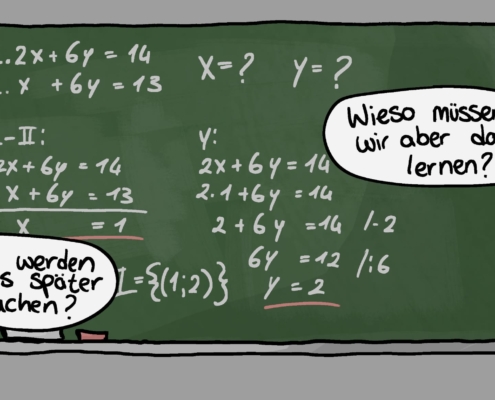 2x+6y = 14
x +6y = 13
X=? Y=?
Wieso müssen
wir aber da
lernen?
-II:
2x+6y = 14
x+6y = 13
x = 1
y:
2x+6y=14
2·1+6y=14
2+6y=14 /-2
6y=12 /:6
y=2
L={(1;2)}
werden
später